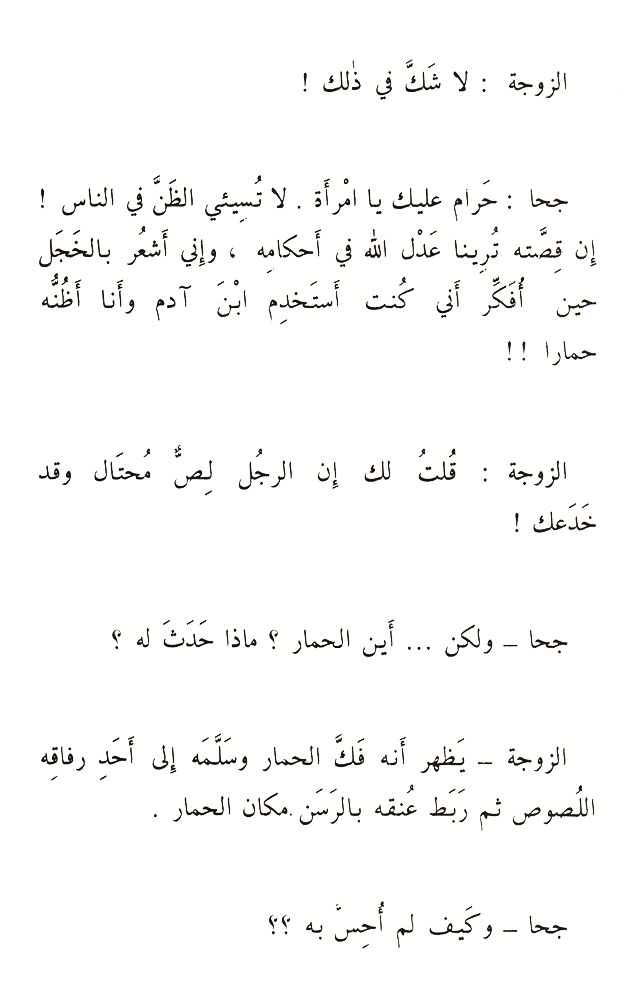 الزوجة : لا شَكَّ في ذٰلك !
جحا : حَرام عليك يا امْرأَة . لا تُسِيئي الظَنَّ في الناس !
إن قِصَّته تُرِينا عَدْل الله في أَحكامِه ، وإني أَشعُر بالخَجَل
حين أُفَكِّر أَني كُنت أَستَخدِم ابْنَ آدم وأَنا أَظُنُّه
حمارا !!
الزوجة : قُلتُ لك إن الرجُل لِصٌّ مُحتَال وقد
خَدَعك !
جحا – ولكن ... أَين الحمار ؟ ماذا حَدَثَ له ؟
الزوجة – يَظهر أَنه فَكَّ الحمار وسَلَّمَه إلى أَحَدِ رفاقِه
اللُصوص ثم رَبَط عُنقه بالرَسَن مكان الحمار .
جحا – وكَيف لم أُحِسّ به ؟؟